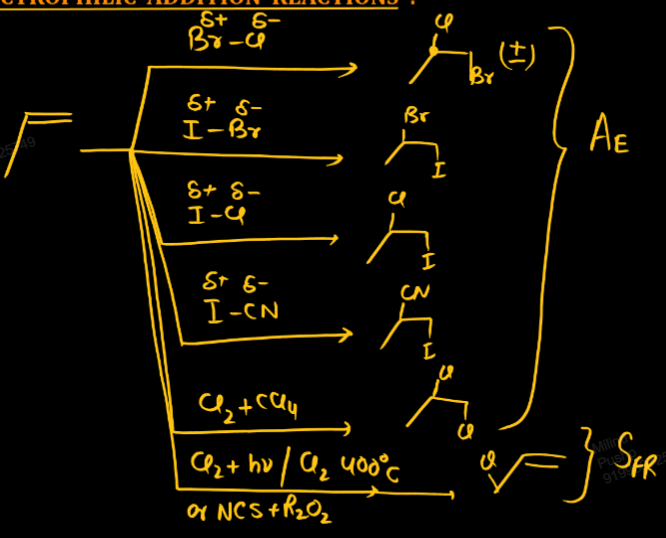 CTROPHILIC ADDITION REACTIONS :
δ+ δ-
Br-Cl
Cl
Br (±)
δ+ δ-
I-Br
Br
I
AE
δ+ δ-
I-Cl
Cl
I
δ+ δ-
I-CN
CN
I
Cl2+CCl4
Cl
Cl
Cl2+hν / Cl2 400°C
or NCS+R2O2
Cl
SFR